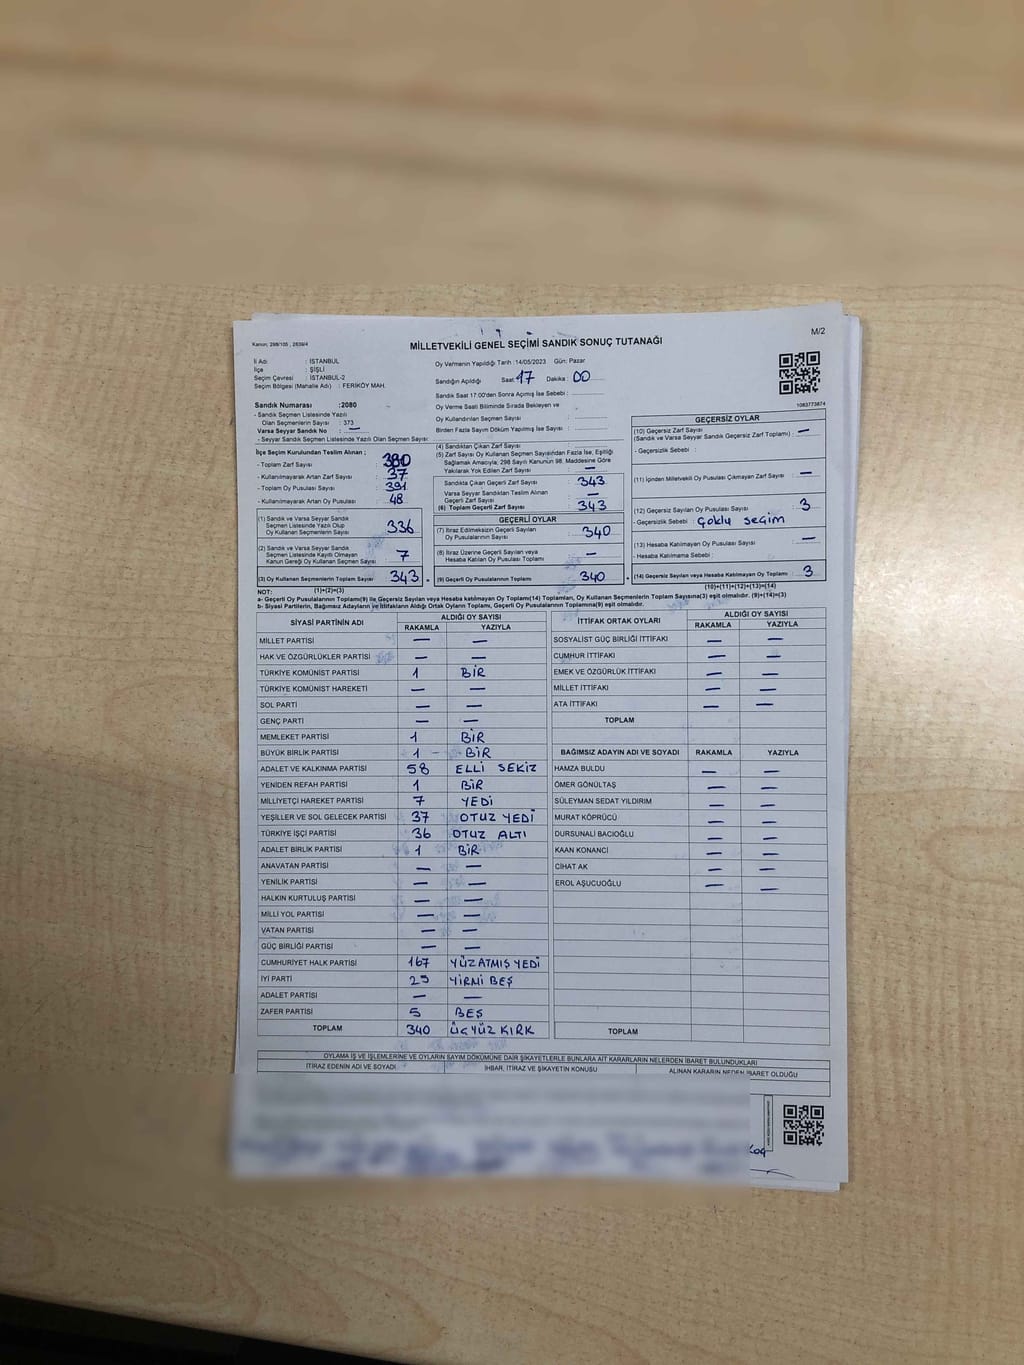 Kanun; 298/105 , 2839/4
MİLLETVEKİLİ GENEL SEÇİMİ SANDIK SONUÇ TUTANAĞI
M/2
İl Adı : İSTANBUL
İlçe : ŞİŞLİ
Seçim Çevresi : İSTANBUL-2
Seçim Bölgesi (Mahalle Adı) : FERİKÖY MAH.
Oy Vermenin Yapıldığı Tarih :14/05/2023 Gün: Pazar
Sandığın Açıldığı Saat: 17 Dakika : 00
Sandık Saat 17:00'den Sonra Açımış İse Sebebi :
Oy Verme Saati Bitiminde Sırada Bekleyen ve
Oy Kullandırılan Seçmen Sayısı :
Birden Fazla Sayım Döküm Yapılmış İse Sayısı :
1083773874
Sandık Numarası :2080
- Sandık Seçmen Listesinde Yazılı
Olan Seçmenlerin Sayısı : 373
Varsa Seyyar Sandık No : —
- Seyyar Sandık Seçmen Listesinde Yazılı Olan Seçmen Sayısı:
İlçe Seçim Kurulundan Teslim Alınan ;
- Toplam Zarf Sayısı : 380
- Kullanılmayarak Artan Zarf Sayısı : 37
- Toplam Oy Pusulası Sayısı : 391
- Kullanılmayarak Artan Oy Pusulası : 48
(1) Sandık ve Varsa Seyyar Sandık
Seçmen Listesinde Yazılı Olup
Oy Kullanan Seçmenlerin Sayısı 336
(2) Sandık ve Varsa Seyyar Sandık
Seçmen Listesinde Kayıtlı Olmayan
Kanun Gereği Oy Kullanan Seçmen Sayısı 7
(3) Oy Kullanan Seçmenlerin Toplam Sayısı 343
(1)+(2)=(3)
(4) Sandıktan Çıkan Zarf Sayısı :
(5) Zarf Sayısı Oy Kullanan Seçmen Sayısından Fazla İse, Eşitliği
Sağlamak Amacıyla; 298 Sayılı Kanunun 98. Maddesine Göre
Yakılarak Yok Edilen Zarf Sayısı : —
Sandıkta Çıkan Geçerli Zarf Sayısı 343
Varsa Seyyar Sandıktan Teslim Alınan
Geçerli Zarf Sayısı —
(6) Toplam Geçerli Zarf Sayısı 343
GEÇERLİ OYLAR
(7) İtiraz Edilmeksizin Geçerli Sayılan
Oy Pusulalarının Sayısı 340
(8) İtiraz Üzerine Geçerli Sayılan veya
Hesaba Katılan Oy Pusulası Toplamı —
= (9) Geçerli Oy Pusulalarının Toplamı 340
GEÇERSİZ OYLAR
(10) Geçersiz Zarf Sayısı
(Sandık ve Varsa Seyyar Sandık Geçersiz Zarf Toplamı) : —
- Geçersizlik Sebebi :
(11) İçinden Milletvekili Oy Pusulası Çıkmayan Zarf Sayısı —
(12) Geçersiz Sayılan Oy Pusulası Sayısı : 3
- Geçersizlik Sebebi : Çoklu seçim
(13) Hesaba Katılmayan Oy Pusulası Sayısı : —
- Hesaba Katılmama Sebebi :
+ (14) Geçersiz Sayılan veya Hesaba Katılmayan Oy Toplamı 3
(10)+(11)+(12)+(13)=(14)
NOT:
a- Geçerli Oy Pusulalarının Toplamı(9) ile Geçersiz Sayılan veya Hesaba katılmayan Oy Toplamı(14) Toplamları, Oy Kullanan Seçmenlerin Toplam Sayısına(3) eşit olmalıdır. (9)+(14)=(3)
b- Siyasi Partilerin, Bağımsız Adayların ve İttifakların Aldığı Oyların Toplamı, Geçerli Oy Pusulalarının Toplamına(9) eşit olmalıdır.
SİYASİ PARTİNİN ADI ALDIĞI OY SAYISI
RAKAMLA YAZIYLA
MİLLET PARTİSİ — —
HAK VE ÖZGÜRLÜKLER PARTİSİ — —
TÜRKİYE KOMÜNİST PARTİSİ 1 BİR
TÜRKİYE KOMÜNİST HAREKETİ — —
SOL PARTİ — —
GENÇ PARTİ — —
MEMLEKET PARTİSİ 1 BİR
BÜYÜK BİRLİK PARTİSİ 1 - BİR
ADALET VE KALKINMA PARTİSİ 58 ELLİ SEKİZ
YENİDEN REFAH PARTİSİ 1 BİR
MİLLİYETÇİ HAREKET PARTİSİ 7 YEDİ
YEŞİLLER VE SOL GELECEK PARTİSİ 37 OTUZ YEDİ
TÜRKİYE İŞÇİ PARTİSİ 36 OTUZ ALTI
ADALET BİRLİK PARTİSİ 1 BİR
ANAVATAN PARTİSİ — —
YENİLİK PARTİSİ — —
HALKIN KURTULUŞ PARTİSİ — —
MİLLİ YOL PARTİSİ — —
VATAN PARTİSİ — —
GÜÇ BİRLİĞİ PARTİSİ — —
CUMHURİYET HALK PARTİSİ 167 YÜZATMIŞ YEDİ
İYİ PARTİ 25 YİRMİ BEŞ
ADALET PARTİSİ — —
ZAFER PARTİSİ 5 BEŞ
TOPLAM 340 ÜÇYÜZ KIRK
İTTİFAK ORTAK OYLARI ALDIĞI OY SAYISI
RAKAMLA YAZIYLA
SOSYALİST GÜÇ BİRLİĞİ İTTİFAKI — —
CUMHUR İTTİFAKI — —
EMEK VE ÖZGÜRLÜK İTTİFAKI — —
MİLLET İTTİFAKI — —
ATA İTTİFAKI — —
TOPLAM
BAĞIMSIZ ADAYIN ADI VE SOYADI RAKAMLA YAZIYLA
HAMZA BULDU — —
ÖMER GÖNÜLTAŞ — —
SÜLEYMAN SEDAT YILDIRIM — —
MURAT KÖPRÜCÜ — —
DURSUNALİ BACIOĞLU — —
KAAN KONANCI — —
CİHAT AK — —
EROL AŞUCUOĞLU — —
TOPLAM
OYLAMA İŞ VE İŞLEMLERİNE VE OYLARIN SAYIM DÖKÜMÜNE DAİR ŞİKAYETLERLE BUNLARA AİT KARARLARIN NELERDEN İBARET BULUNDUKLARI
İTİRAZ EDENİN ADI VE SOYADI İHBAR, İTİRAZ VE ŞİKAYETİN KONUSU ALINAN KARARIN NEDEN İBARET OLDUĞU